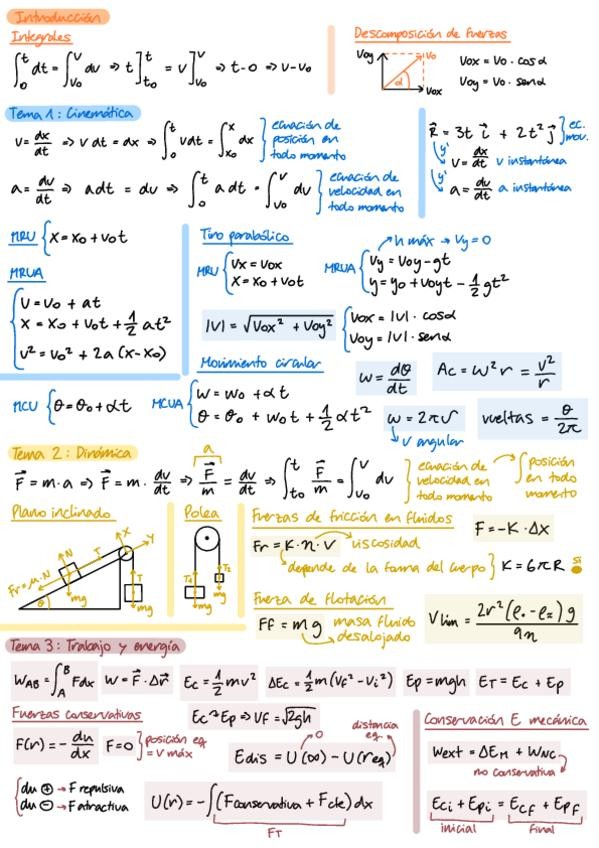 Introducción
Integrales
∫₀ᵗ dt = ∫ᵥ₀ᵛ dv ⇒ t]ᵗₜ₀ = v]ᵛᵥ₀ ⇒ t-0 ⇒ v-v₀
Descomposición de fuerzas
Voy
Vo
α
Vox
Vox = Vo · cosα
Voy = Vo · senα
Tema 1: Cinemática
v = dx/dt ⇒ v dt = dx ⇒ ∫₀ᵗ v dt = ∫ₓ₀ˣ dx
ecuación de
posición en
todo momento
a = dv/dt ⇒ a dt = dv ⇒ ∫₀ᵗ a dt = ∫ᵥ₀ᵛ dv
ecuación de
velocidad en
todo momento
R⃗ = 3t i⃗ + 2t² j⃗
ec.
mov.
y'
v = dx/dt v instantánea
y'
a = dv/dt a instantánea
MRU { x = x₀ + v₀t
MRUA
v = v₀ + at
x = x₀ + v₀t + 1/2 at²
v² = v₀² + 2a (x-x₀)
Tiro parabólico
MRU { Vx = Vox
x = x₀ + v₀t
h máx → Vy = 0
MRUA { Vy = Voy - gt
y = y₀ + voyt - 1/2 gt²
|V| = √Vox² + Voy²
Vox = |V| · cosα
Voy = |V| · senα
Movimiento circular
MCU { θ = θ₀ + αt
MCUA { w = w₀ + αt
θ = θ₀ + w₀t + 1/2 αt²
w = dθ/dt
Ac = w² r = v²/r
w = 2πν
v angular
vueltas = θ/2π
Tema 2: Dinámica
a
F⃗ = m·a ⇒ F⃗ = m · dv/dt ⇒ F⃗/m = dv/dt ⇒ ∫ₜ₀ᵗ F⃗/m = ∫ᵥ₀ᵛ dv
ecuación de
velocidad en
todo momento
∫ posición
en todo
momento
Plano inclinado
Fr = μ·N
N
T
X
Y
T
mg
mg
θ
Polea
T₂
mg
mg
Fuerzas de fricción en fluidos
Fr = K · n · v
viscosidad
F = -K · Δx
depende de la forma del cuerpo } K = 6πR
si
Fuerza de flotación
Ff = mg
masa fluido
desalojado
Vlim = 2r² (ρ₀ - ρ₂) g / 9n
Tema 3: Trabajo y energía
WAB = ∫ₐᴮ Fdx
W = F⃗ · Δr⃗
Ec = 1/2 mv²
ΔEc = 1/2 m (Vf² - Vi²)
Ep = mgh
ET = Ec + Ep
Fuerzas conservativas
Ec = Ep ⇒ Vf = √2gh
F(r) = - du/dx
F = 0 } posición eq.
= v máx
0
distancia
eq.
Edis = U(∞) - U(req)
du ⊕ → F repulsiva
du ⊖ → F atractiva
U(r) = -∫(Fconservativa + Fcte) dx
FT
Conservación E mecánica
Wext = ΔEM + WNC
no conservativa
Eci + Epi = Ecf + Epf
inicial
final